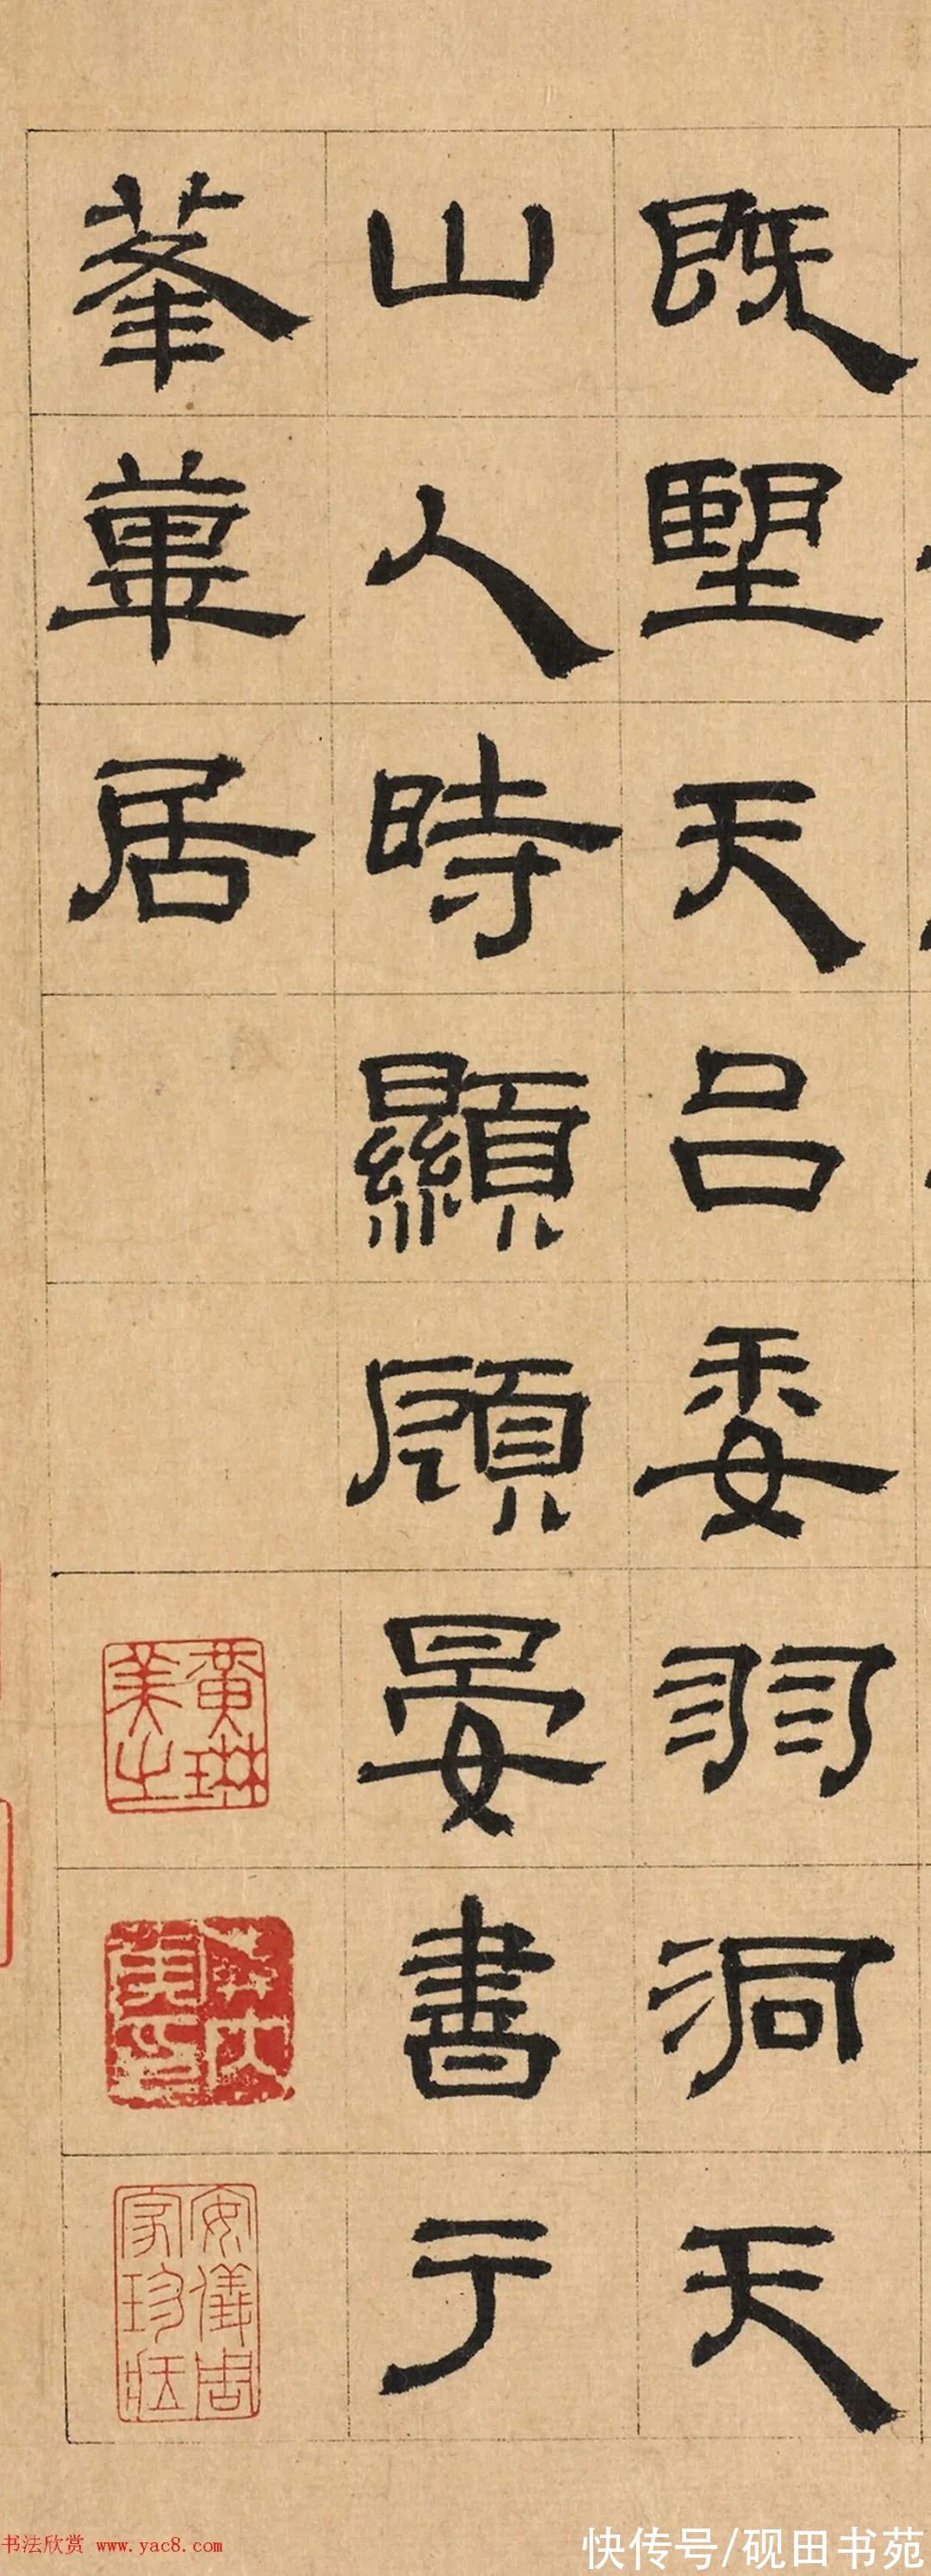 既朢天台委羽洞天
山人時顯顧晏書于
莑蓽居
黃琳美之
安儀周家珍藏
书法欣赏 www.yac8.com
快传号/砚田书苑